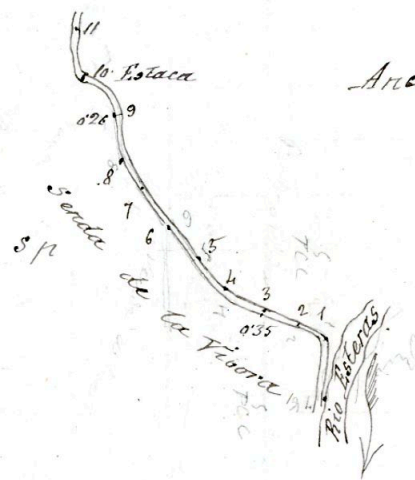 11
10. Estaca
Anc
0'26 9
8
7
6
5
4
3
2
1
0'35
Senda de la Vivora
Rio Esteras